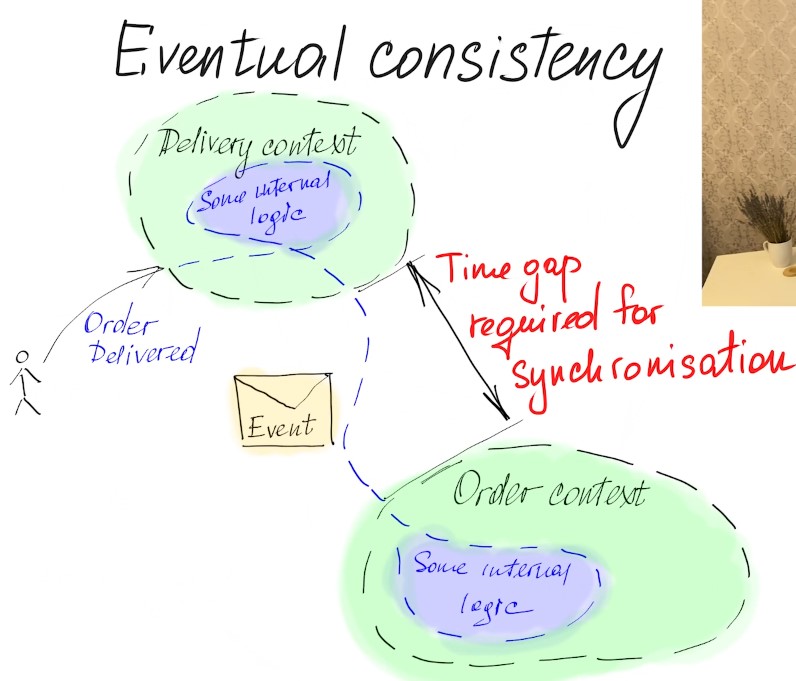 Eventual consistency
Delivery context
Some internal
logic
Order
Delivered
Time gap
required for
synchronisation
Event
Order context
Some internal
logic